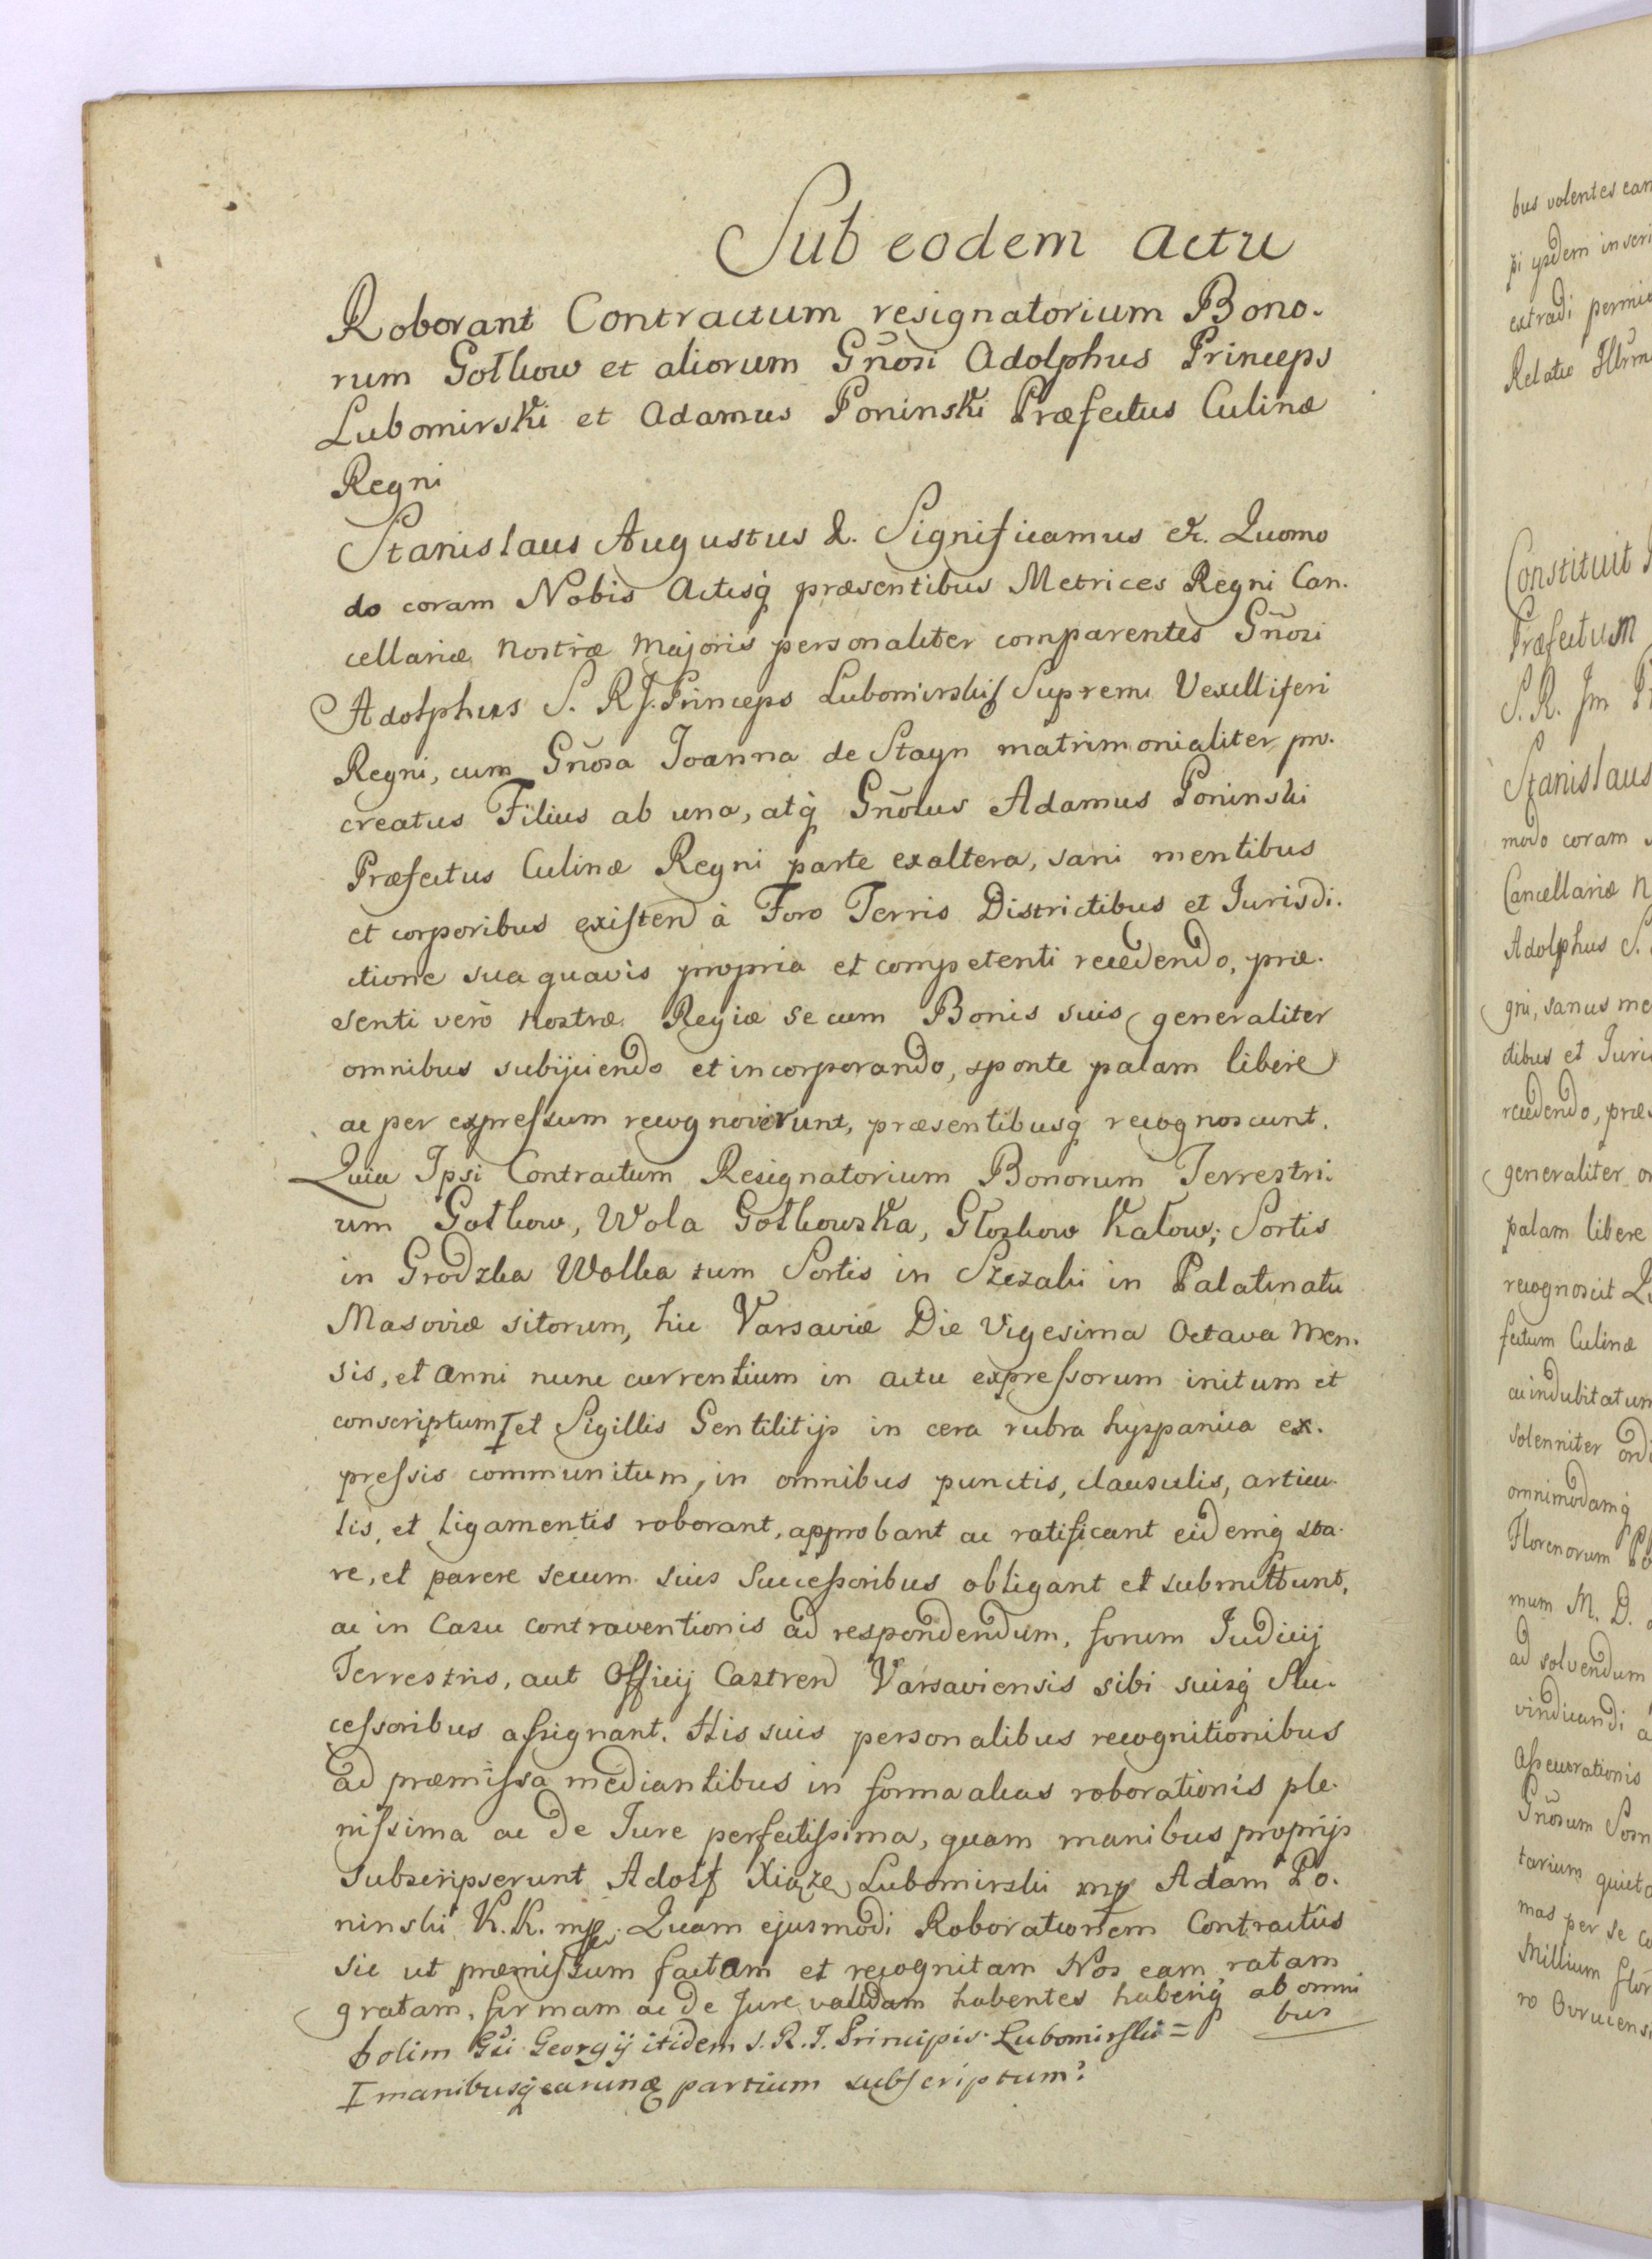 Sub eodem Actu
Roborant Contractum resignatorium Bono-
rum Gołkow et aliorum Gñosi Adolphus Princeps
Lubomirski et Adamus Poninski Præfectus Culinæ
Regni
Stanislaus Augustus &. Significamus &. Quomo
do coram Nobis Actisq́ præsentibus Metrices Regni Can-
cellariæ nostræ Majoris personaliter comparentes Gñosi
Adolphus S. R. J. Princeps Lubomirski ꝭ Supremi Vexilliferi
Regni, cum Gñosa Joanna de Stayn matrimonialiter pro-
creatus Filius ab una, atq́ Gñosus Adamus Poninski
Præfectus Culinæ Regni parte exaltera, sani mentibus
et corporibus existen à Foro Terris Districtibus et Jurisdi-
ctione sua quavis propria et competenti recedendo, præ-
senti verò nostræ Regiæ se cum Bonis suis generaliter
omnibus subijciendo et incorporando, sponte palam libere
ac per expressum recognoverunt, præsentibusq́ recognoscunt.
Quia Ipsi Contractum Resignatorium Bonorum Terrestri-
um Gołkow, Wola Gołkowska, Głoskow Kałow; Sortis
in Grodzka Wolka tum Sortis in Szczaki in Palatinatu
Masoviæ sitorum, hic Varsaviæ Die Vigesima Octava Men-
sis, et Anni nunc currentium in actu expressorum initum et
conscriptum I et Sigillis Gentilitijs in cera rubra hyspanica ex-
pressis communitum, in omnibus punctis, clausulis, articu-
lis, et ligamentis roborant, approbant ac ratificant eidemq́ sta-
re, et parere secum suis Successoribus obligant et submittunt,
ac in Casu contraventionis ad respondendum, forum Judicij
Terrestris, aut Officij Castren Varsaviensis sibi suisq́ Suc-
cessoribus assignant. His suis personalibus recognitionibus
ad præmissa mediantibus in forma alias roborationis ple-
nissima ac de Jure perfectissima, quam manibus proprijs
subscripserunt Adolf Xiąze Lubomirski mp Adam Po-
ninski K. K. mp. Quam ejusmodi Roborationem Contractûs
sic ut præmissum factam et recognitam Nos eam ratam
gratam, firmam ac de Jure validam habentes haberiq́ ab omni
bus
ꝭ olim Gñi Georgij itidem S. R. J. Principis Lubomirski =
I manibusq́ earunq partium subscriptum: